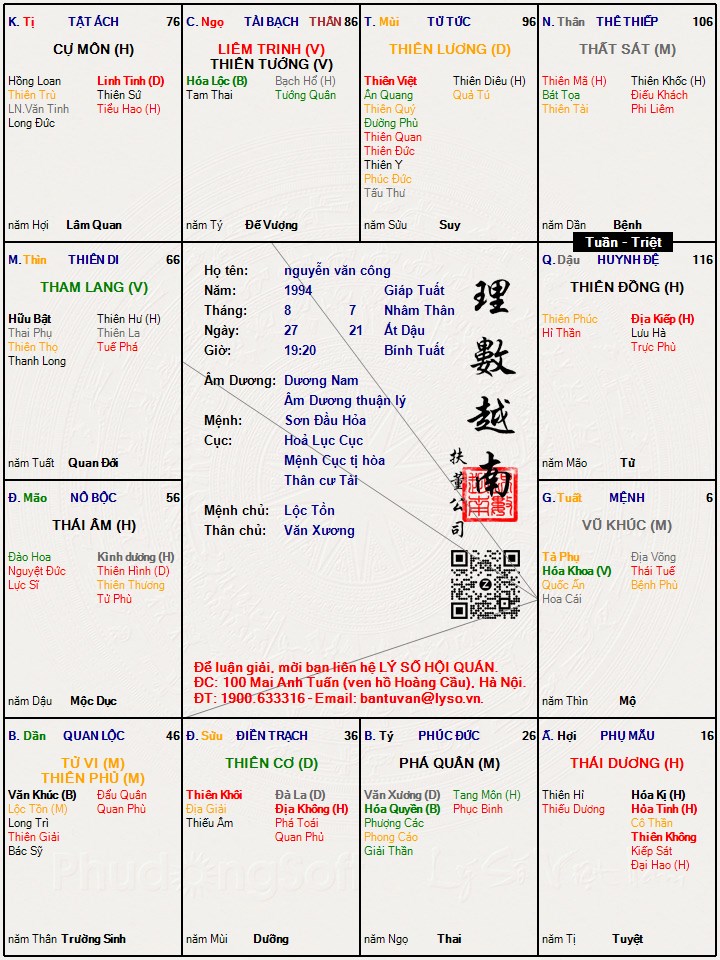 K. Tị TẬT ÁCH 76
CỰ MÔN (H)
Hồng Loan Linh Tinh (D)
Thiên Trù Thiên Sứ
LN.Văn Tinh Tiểu Hao (H)
Long Đức
năm Hợi Lâm Quan
C. Ngọ TÀI BẠCH THÂN 86
LIÊM TRINH (V)
THIÊN TƯỚNG (V)
Hóa Lộc (B) Bạch Hổ (H)
Tam Thai Tướng Quân
năm Tý Đế Vượng
T. Mùi TỬ TỨC 96
THIÊN LƯƠNG (D)
Thiên Việt Thiên Diêu (H)
Ân Quang Quả Tú
Thiên Quý
Đường Phù
Thiên Quan
Thiên Đức
Thiên Y
Phúc Đức
Tấu Thư
năm Sửu Suy
N. Thân THÊ THIẾP 106
THẤT SÁT (M)
Thiên Mã (H) Thiên Khốc (H)
Bát Tọa Điếu Khách
Thiên Tài Phi Liêm
năm Dần Bệnh
Tuần - Triệt
M. Thìn THIÊN DI 66
THAM LANG (V)
Hữu Bật Thiên Hư (H)
Thai Phụ Thiên La
Thiên Thọ Tuế Phá
Thanh Long
năm Tuất Quan Đới
Họ tên: nguyễn văn công
Năm: 1994 Giáp Tuất
Tháng: 8 7 Nhâm Thân
Ngày: 27 21 Ất Dậu
Giờ: 19:20 Bính Tuất
Âm Dương: Dương Nam
Âm Dương thuận lý
Mệnh: Sơn Đầu Hỏa
Cục: Hoả Lục Cục
Mệnh Cục tị hòa
Thân cư Tài
Mệnh chủ: Lộc Tồn
Thân chủ: Văn Xương
理數越南
扶董公司
Z
Để luận giải, mời bạn liên hệ LÝ SỐ HỘI QUÁN.
ĐC: 100 Mai Anh Tuấn (ven hồ Hoàng Cầu), Hà Nội.
ĐT: 1900.633316 - Email: bantuvan@lyso.vn.
Q. Dậu HUYNH ĐỆ 116
THIÊN ĐỒNG (H)
Thiên Phúc Địa Kiếp (H)
Hỉ Thần Lưu Hà
Trực Phù
năm Mão Tử
Đ. Mão NÔ BỘC 56
THÁI ÂM (H)
Đào Hoa Kình dương (H)
Nguyệt Đức Thiên Hình (D)
Lực Sĩ Thiên Thương
Tử Phù
năm Dậu Mộc Dục
G. Tuất MỆNH 6
VŨ KHÚC (M)
Tả Phụ Địa Võng
Hóa Khoa (V) Thái Tuế
Quốc Ấn Bệnh Phù
Hoa Cái
năm Thìn Mộ
B. Dần QUAN LỘC 46
TỬ VI (M)
THIÊN PHỦ (M)
Văn Khúc (B) Đẩu Quân
Lộc Tồn (M) Quan Phù
Long Trì
Thiên Giải
Bác Sỹ
năm Thân Trường Sinh
Đ. Sửu ĐIỀN TRẠCH 36
THIÊN CƠ (D)
Thiên Khôi Đà La (D)
Địa Giải Địa Không (H)
Thiếu Âm Phá Toái
Quan Phủ
năm Mùi Dưỡng
B. Tý PHÚC ĐỨC 26
PHÁ QUÂN (M)
Văn Xương (D) Tang Môn (H)
Hóa Quyền (B) Phục Binh
Phượng Các
Phong Cáo
Giải Thần
năm Ngọ Thai
Ấ. Hợi PHỤ MẪU 16
THÁI DƯƠNG (H)
Thiên Hỉ Hóa Kị (H)
Thiếu Dương Hỏa Tinh (H)
Cô Thần
Thiên Không
Kiếp Sát
Đại Hao (H)
năm Tị Tuyệt